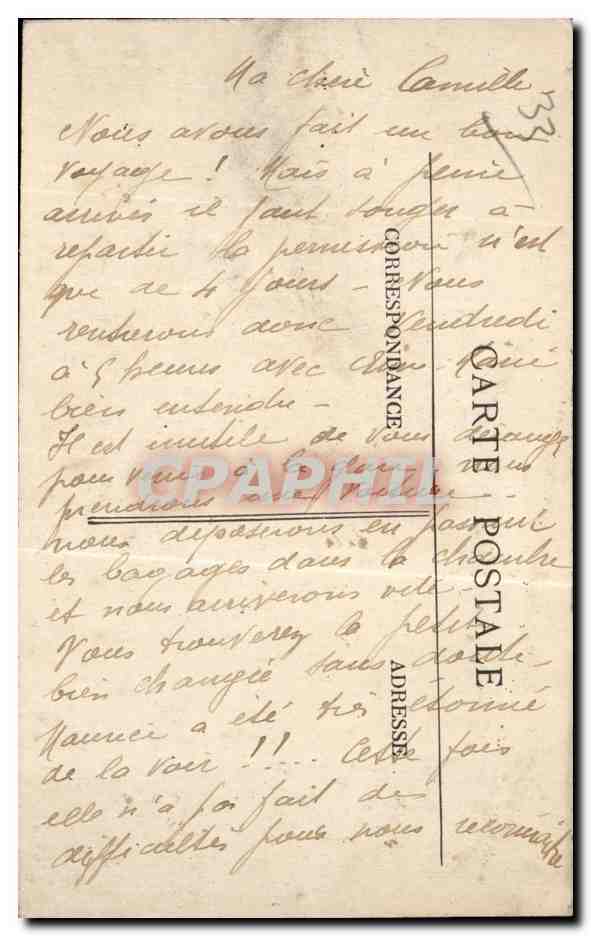 Ma chère Camille
33
Nous avons fait un bon
voyage ! Mais à peine
arrivés il faut songer à
repartir la permission n'est
que de 4 jours - Nous
rentrerons donc Vendredi
à 5 heures avec Mimi
bien entendu -
Il est inutile de vous déranger
pour venir à la gare nous
prendrons une voiture
nous déposerons en passant
les bagages dans la chambre
et nous arriverons vite -
Vous trouverez la petite
bien changée sans doute -
Maurice a été très étonné
de la voir !! .... Cette fois
elle n'a pas fait de
difficultés pour nous reconnaître
CORRESPONDANCE
CARTE POSTALE
ADRESSE
CPAPHIL